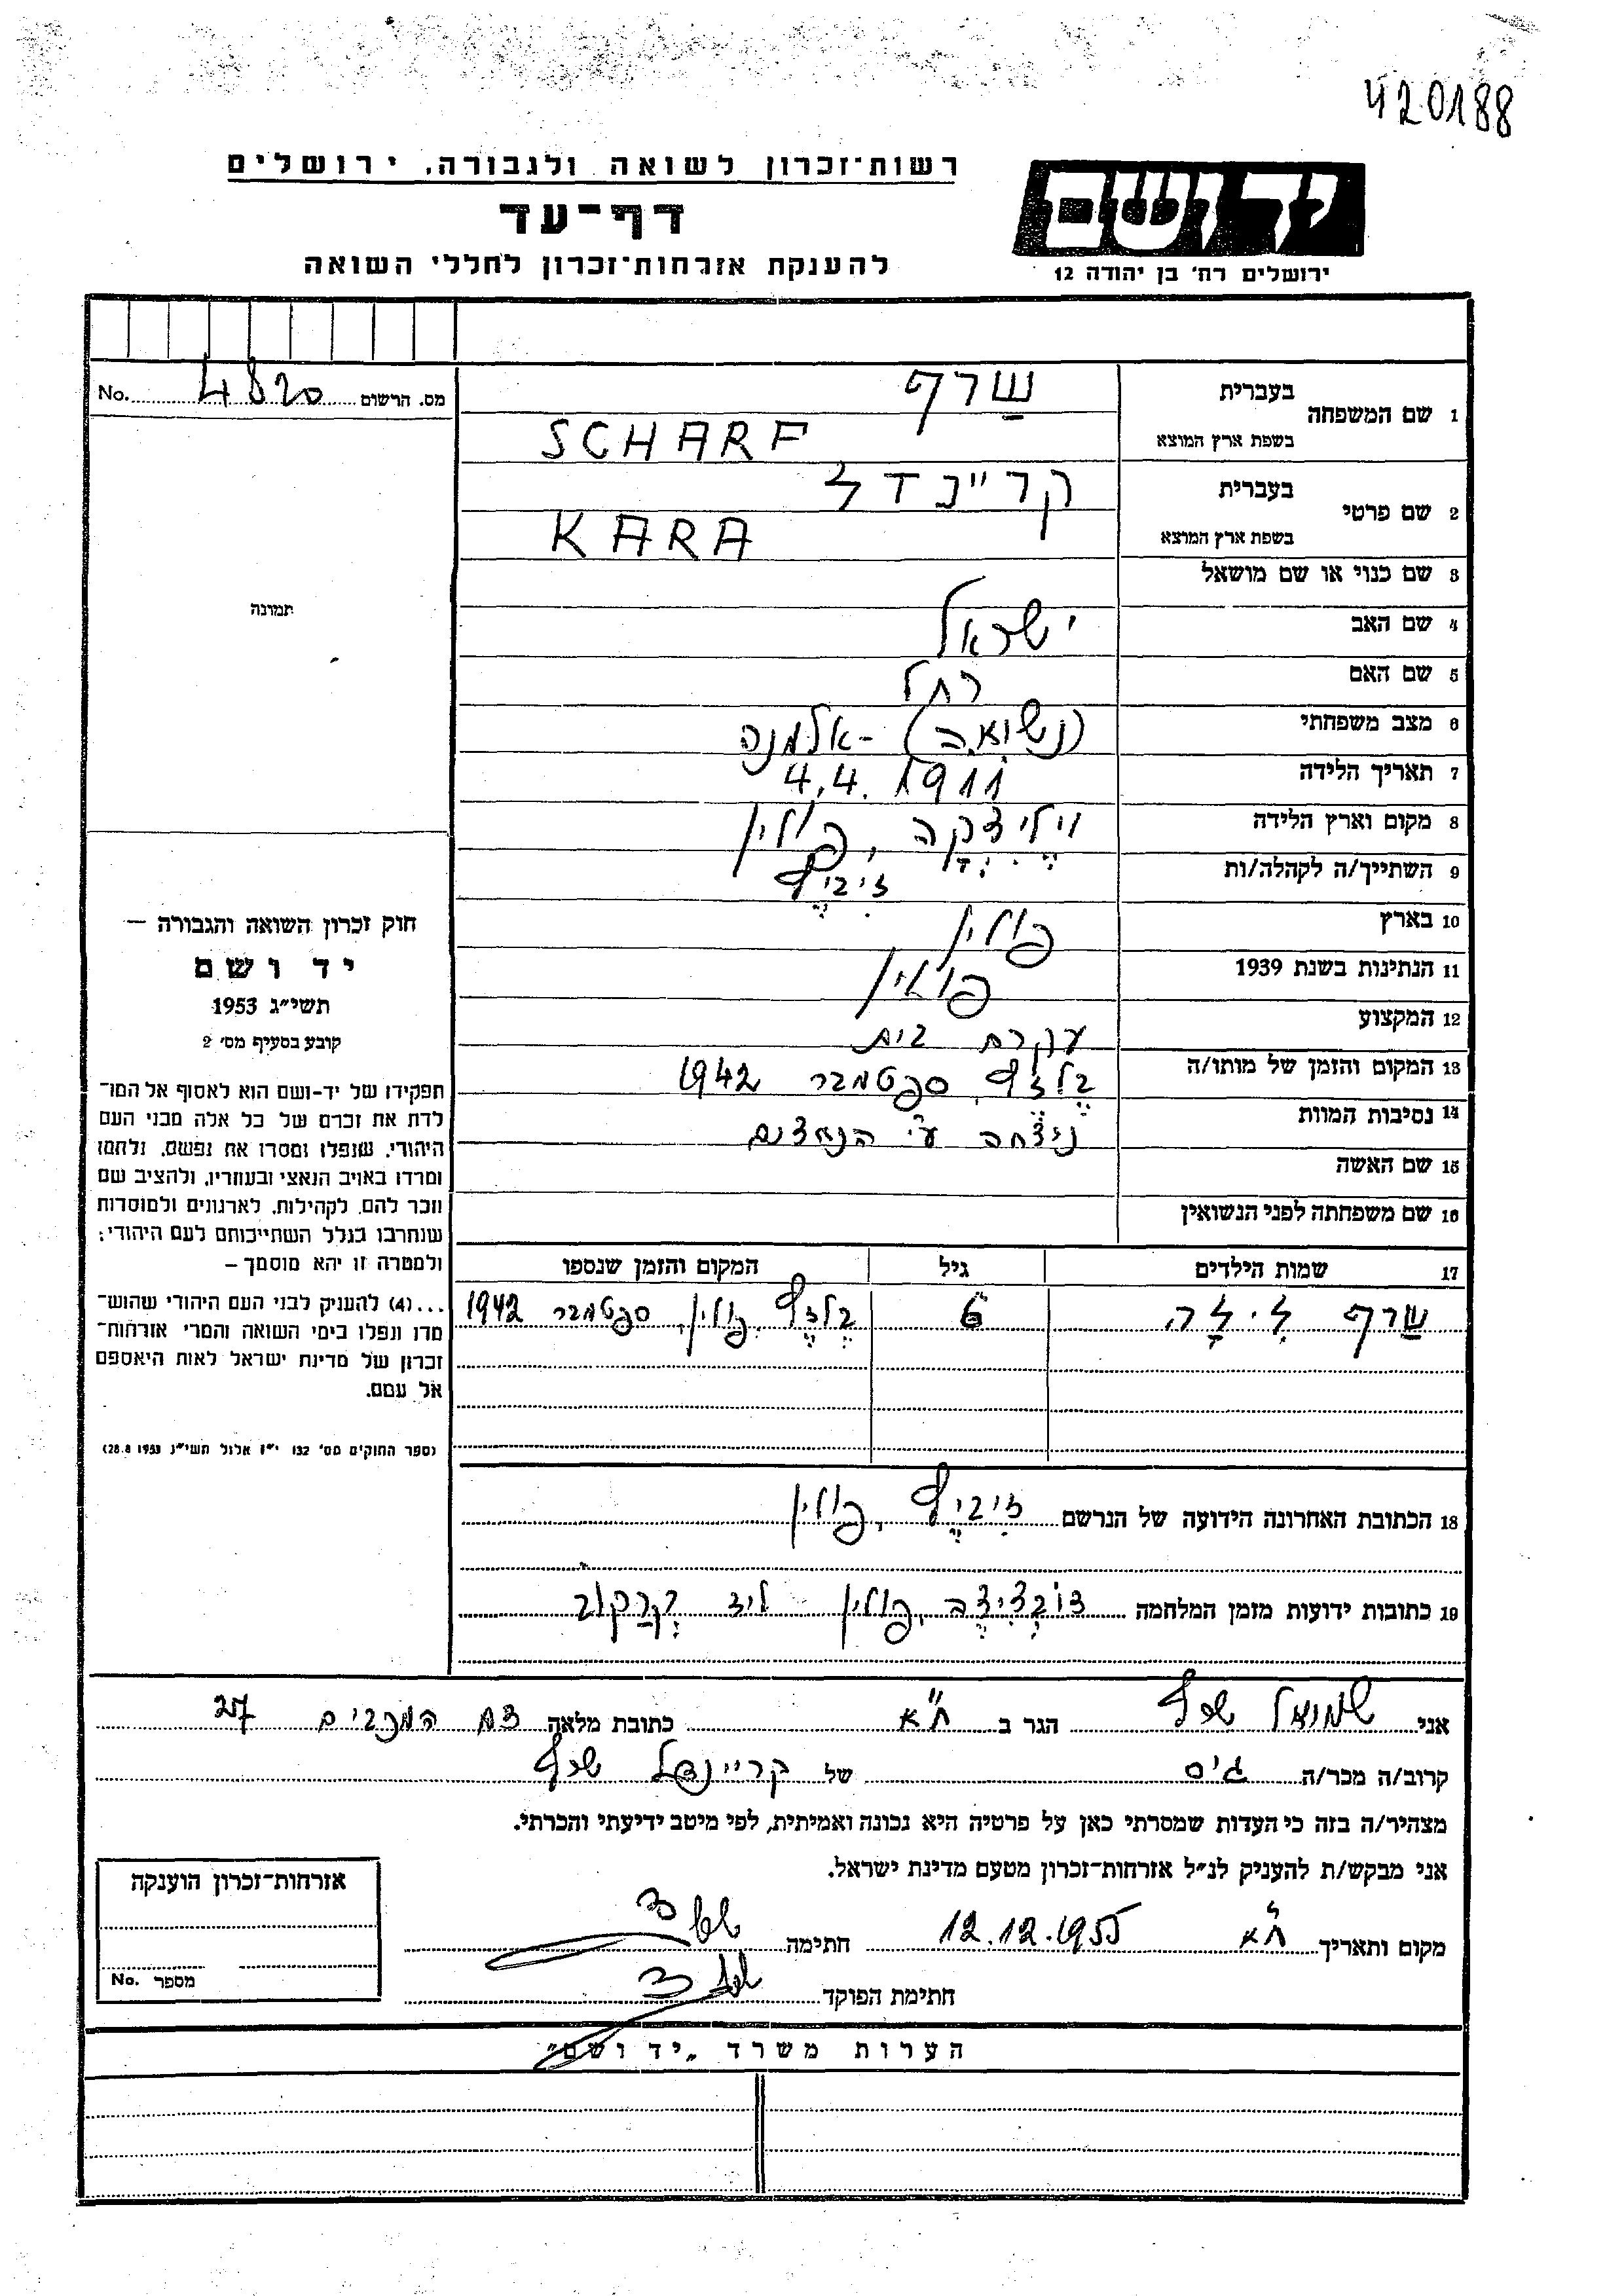 420188
רשות־זכרון לשואה ולגבורה, ירושלים
דף־עד
להענקת אזרחות־זכרון לחללי השואה
יד ושם
ירושלים רח' בן יהודה 12
מס. הרשום 4820 No.
1 שם המשפחה
בעברית שַרף
בשפת ארץ המוצא SCHARF
2 שם פרטי
בעברית קריינדל
בשפת ארץ המוצא KARA
3 שם כנוי או שם מושאל
4 שם האב ישראל
5 שם האם רחל
6 מצב משפחתי (נשואה) - אלמנה
7 תאריך הלידה 4.4.1911
8 מקום וארץ הלידה ויליצקה, פולין
9 השתייך/ה לקהלה/ות זיביץ
10 בארץ פולין
11 הנתינות בשנת 1939 פולין
12 המקצוע עקרת בית
13 המקום והזמן של מותו/ה בלזץ ספטמבר 1942
14 נסיבות המוות ניצחה ע"י הנאצים
15 שם האשה
16 שם משפחתה לפני הנשואין
17 שמות הילדים גיל המקום והזמן שנספו
שַרף לילה 6 בלזץ, פולין, ספטמבר 1942
18 הכתובת האחרונה הידועה של הנרשם פולין
19 כתובות ידועות מזמן המלחמה פולין ליד קרקוב
תמונה
חוק זכרון השואה והגבורה —
יד ושם
תשי"ג 1953
קובע בסעיף מס' 2
תפקידו של יד-ושם הוא לאסוף אל המו־
לדת את זכרם של כל אלה מבני העם
היהודי, שנפלו ומסרו את נפשם, נלחמו
ומרדו באויב הנאצי ובעוזריו, ולהציב שם
וזכר להם, לקהילות, לארגונים ולמוסדות
שנחרבו בגלל השתייכותם לעם היהודי;
ולמטרה זו יהא מוסמך —
...(4) להעניק לבני העם היהודי שהוש־
מדו ונפלו בימי השואה והמרי אזרחות־
זכרון של מדינת ישראל לאות היאספם
אל עמם.
(ספר החוקים מס' 132 י"ז אלול תשי"ג 28.8.1953)
אני שמואל שרף הגר ב ת"א כתובת מלאה המכבים 27
קרוב/ה מכר/ה גיס של קריינדל שרף
מצהיר/ה בזה כי העדות שמסרתי כאן על פרטיה היא נכונה ואמיתית, לפי מיטב ידיעתי והכרתי.
אני מבקש/ת להעניק לנ"ל אזרחות־זכרון מטעם מדינת ישראל.
מקום ותאריך ת"א 12.12.1955 חתימה
חתימת הפוקד
אזרחות־זכרון הוענקה
מספר No.
הערות משרד „יד ושם"